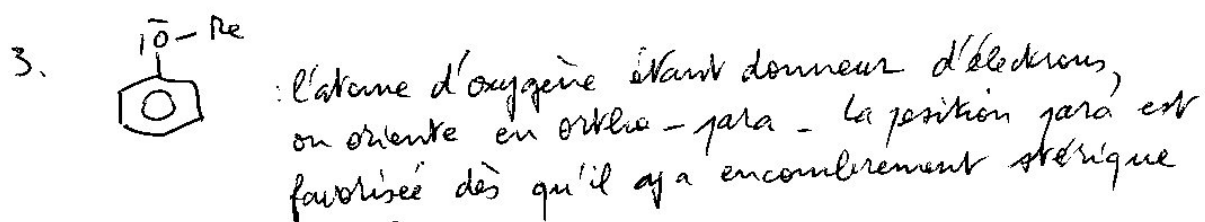 3.
|O̅-Me
: l'atome d'oxygène étant donneur d'électrons,
on oriente en ortho-para - la position para est
favorisée dès qu'il y a encombrement stérique